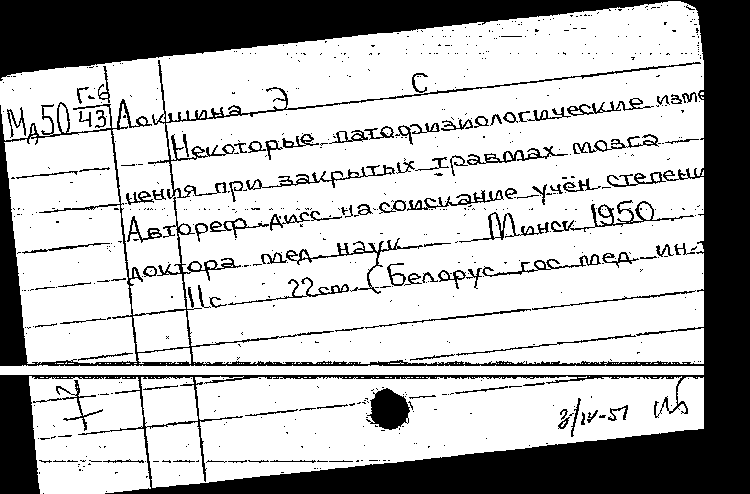 Мд50 Г-6/43 Локшина, Э С
Некоторые патофизиологические изме
нения при закрытых травмах мозга
Автореф. дисс на соискание учён степени
доктора мед. наук Минск 1950
11с 22cm. (Белорус гос мед ин-т
3/IV-51